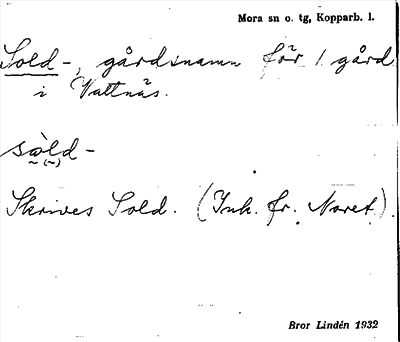 Mora sn o. tg, Kopparb. l.
Sold-, gårdsnamn för 1 gård
i Vattnäs.
sàld-
Skrives Sold. (Ink. fr. Noret).
Bror Lindén 1932